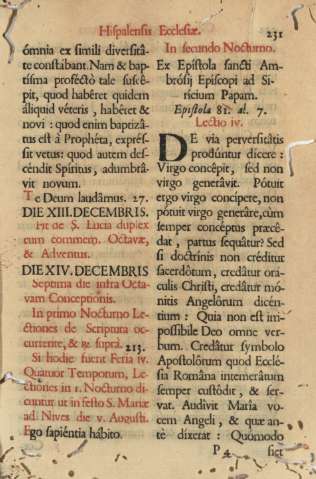 Hispalensis Ecclesiæ. 231
ómnia ex simili diversitá-
te constábant. Nam & bap-
tísma profécto tale suscé-
pit, quod habéret quidem
áliquid véteris, habéret &
novi: quod enim baptizá-
tus est à Prophéta, exprés-
sit vetus: quod autem des-
céndit Spíritus, adumbrá-
vit novum.
Te Deum laudámus. 27.
DIE XIII. DECEMBRIS.
Fit de S. Lucia duplex
cum commem. Octavæ,
& Adventus.
DIE XIV. DECEMBRIS
Septima die infra Octa-
vam Conceptionis.
In primo Nocturno Le-
ctiones de Scriptura oc-
currente, & ℟. supra. 213.
Si hodie fuerit Feria iv.
Quatuor Temporum, Le-
ctiones in 1. Nocturno di-
cuntur ut in festo S. Mariæ
ad Nives die v. Augusti.
Ego sapiéntia hábito.
In secundo Nocturno.
Ex Epístola sancti Am-
brósij Epíscopi ad Si-
rícium Papam.
Epistola 81. al. 7.
Lectio iv.
DE via perversitátis
prodúntur dícere:
Virgo concépit, sed non
virgo generávit. Pótuit
ergo virgo concípere, non
pótuit virgo generáre, cùm
semper concéptus præcé-
dat, partus sequátur? Sed
si doctrínis non créditur
sacerdótum, credátur orá-
culis Christi, credátur mó-
nitis Angelórum dicén-
tium: Quia non est im-
possíbile Deo omne ver-
bum. Credátur symbolo
Apostolórum quod Ecclé-
sia Romána intemerátum
semper custódit, & ser-
vat. Audívit María vo-
cem Angeli, & quæ an-
tè díxerat: Quómodo
P 4 fiet